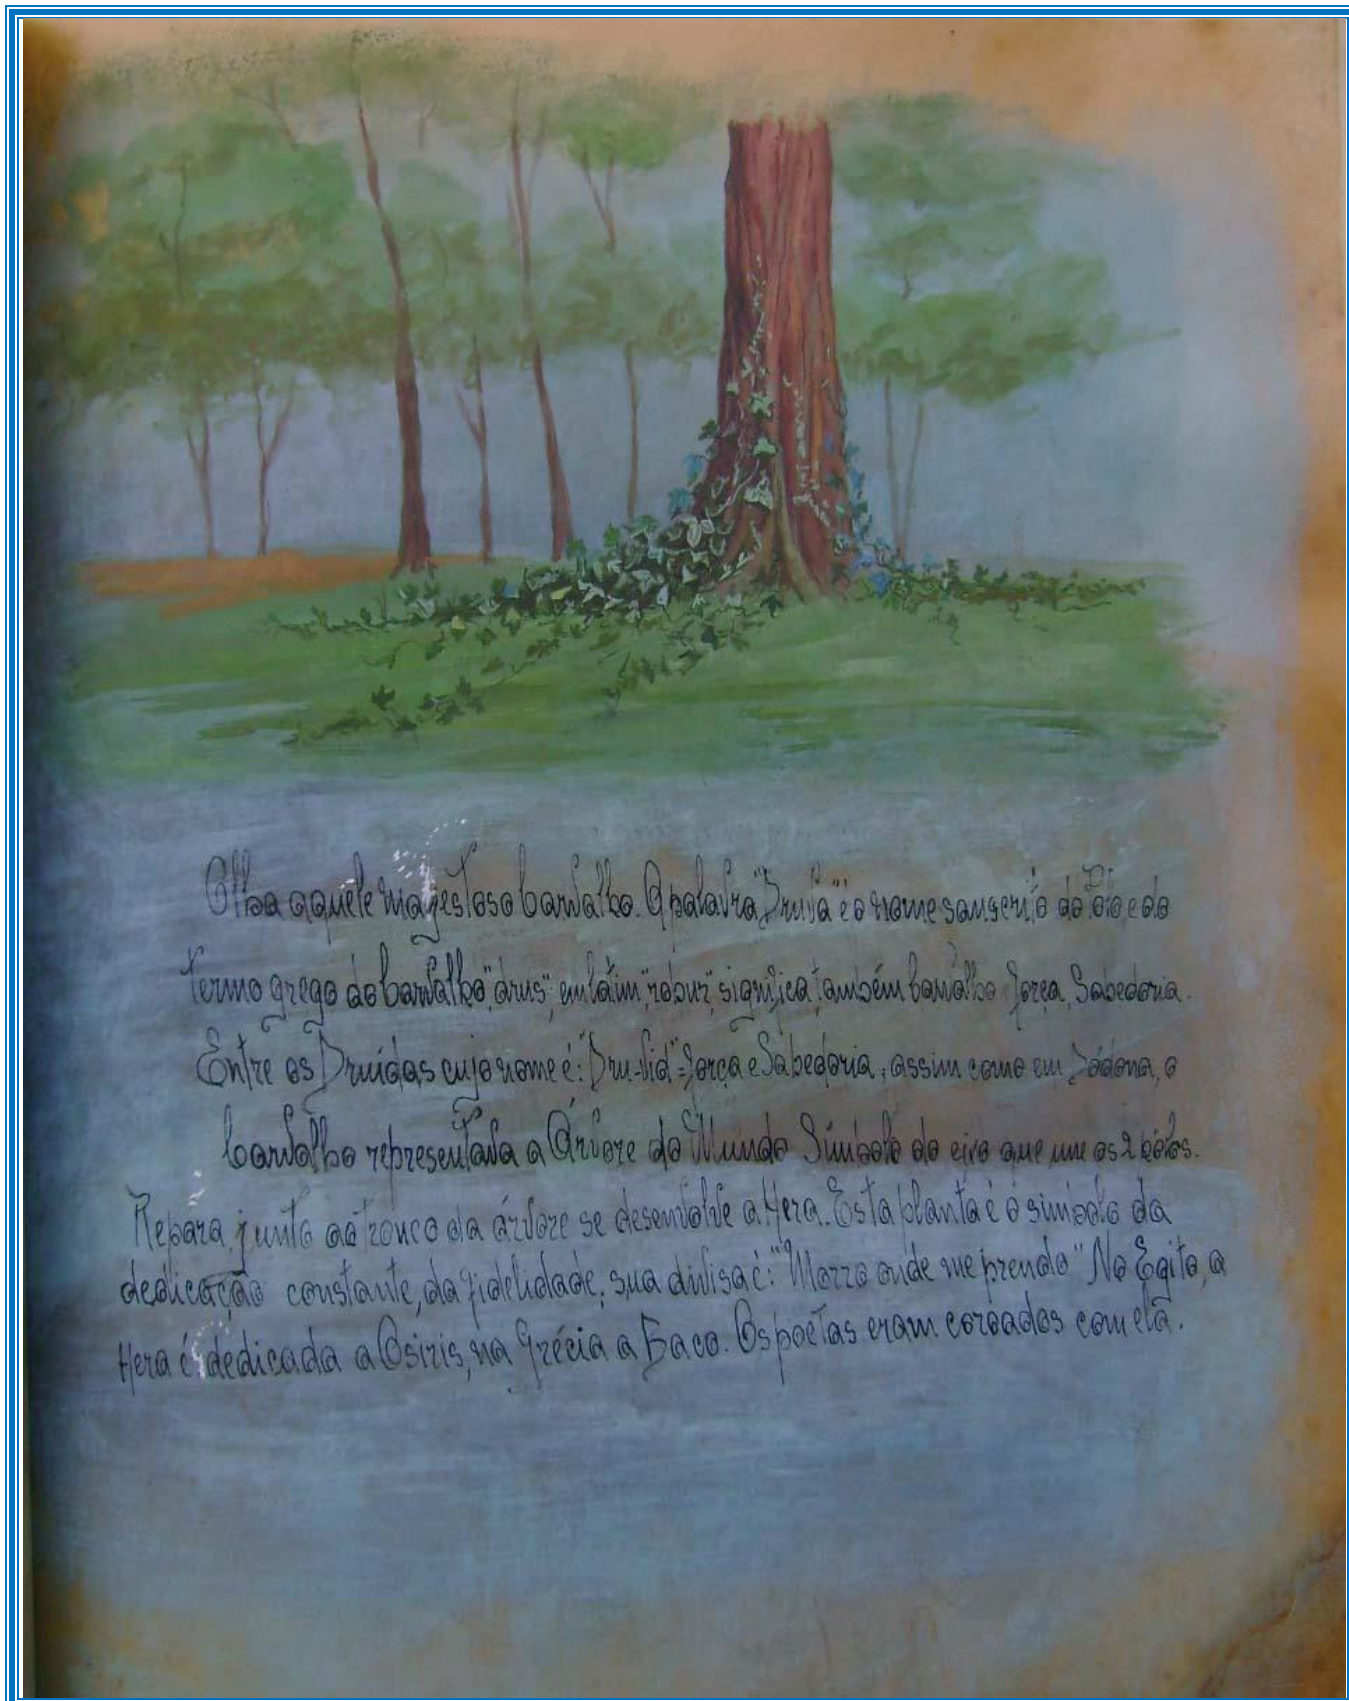 Olha aquele magestoso carvalho. A palavra "Druva" é o nome sanscrito do Pólo, e do
termo grego do carvalho, "drus"; em latim, "robur", significa também carvalho força, Sabedoria.
Entre os Druídas cujo nome é: "Dru-Vid" = força e Sabedoria, assim como em Dódona, o
carvalho representava a Árvore do Mundo Símbolo do eixo que une os 2 pólos.
Repara, junto ao tronco da árvore se desenvolve a Hera. Esta planta é o símbolo da
dedicação constante, da fidelidade; sua divisa é: "Morro onde me prendo" No Egito, a
Hera é dedicada a Osiris, na Grécia a Baco. Os poetas eram coroados com ela.